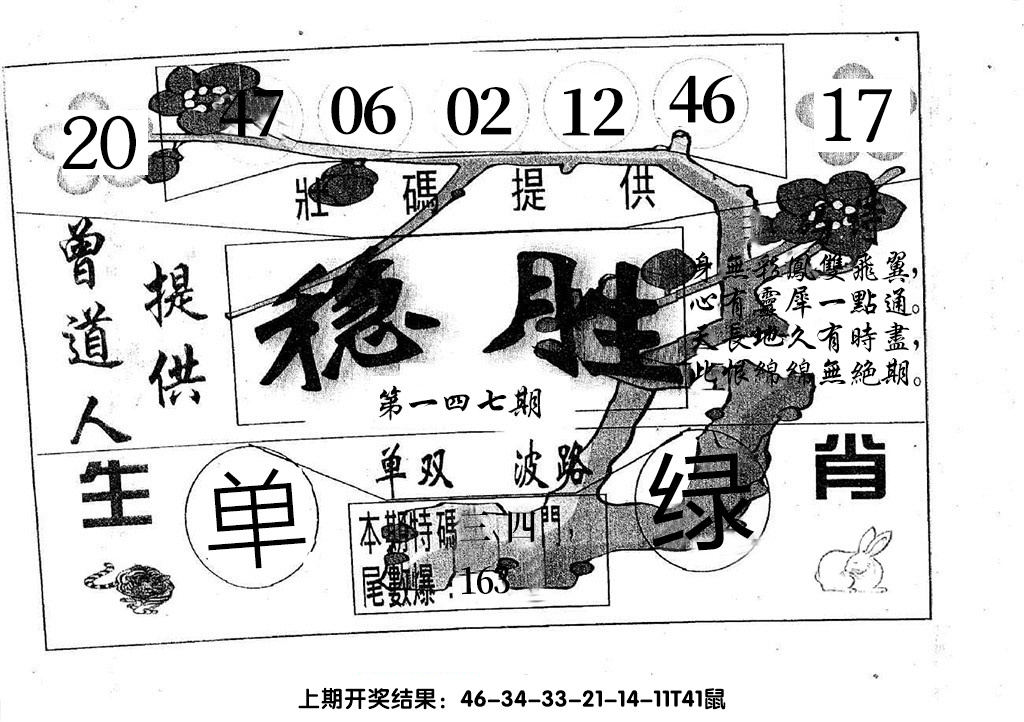 20 47 06 02 12 46 17
壯碼提供
曾道人
提供
稳胜
第一四七期
身無彩鳳雙飛翼，
心有靈犀一點通。
天長地久有時盡，
此恨綿綿無絕期。
单双 波路
生 单 绿 肖
本期特碼三、四門，
尾數爆：163
上期开奖结果：46-34-33-21-14-11T41鼠